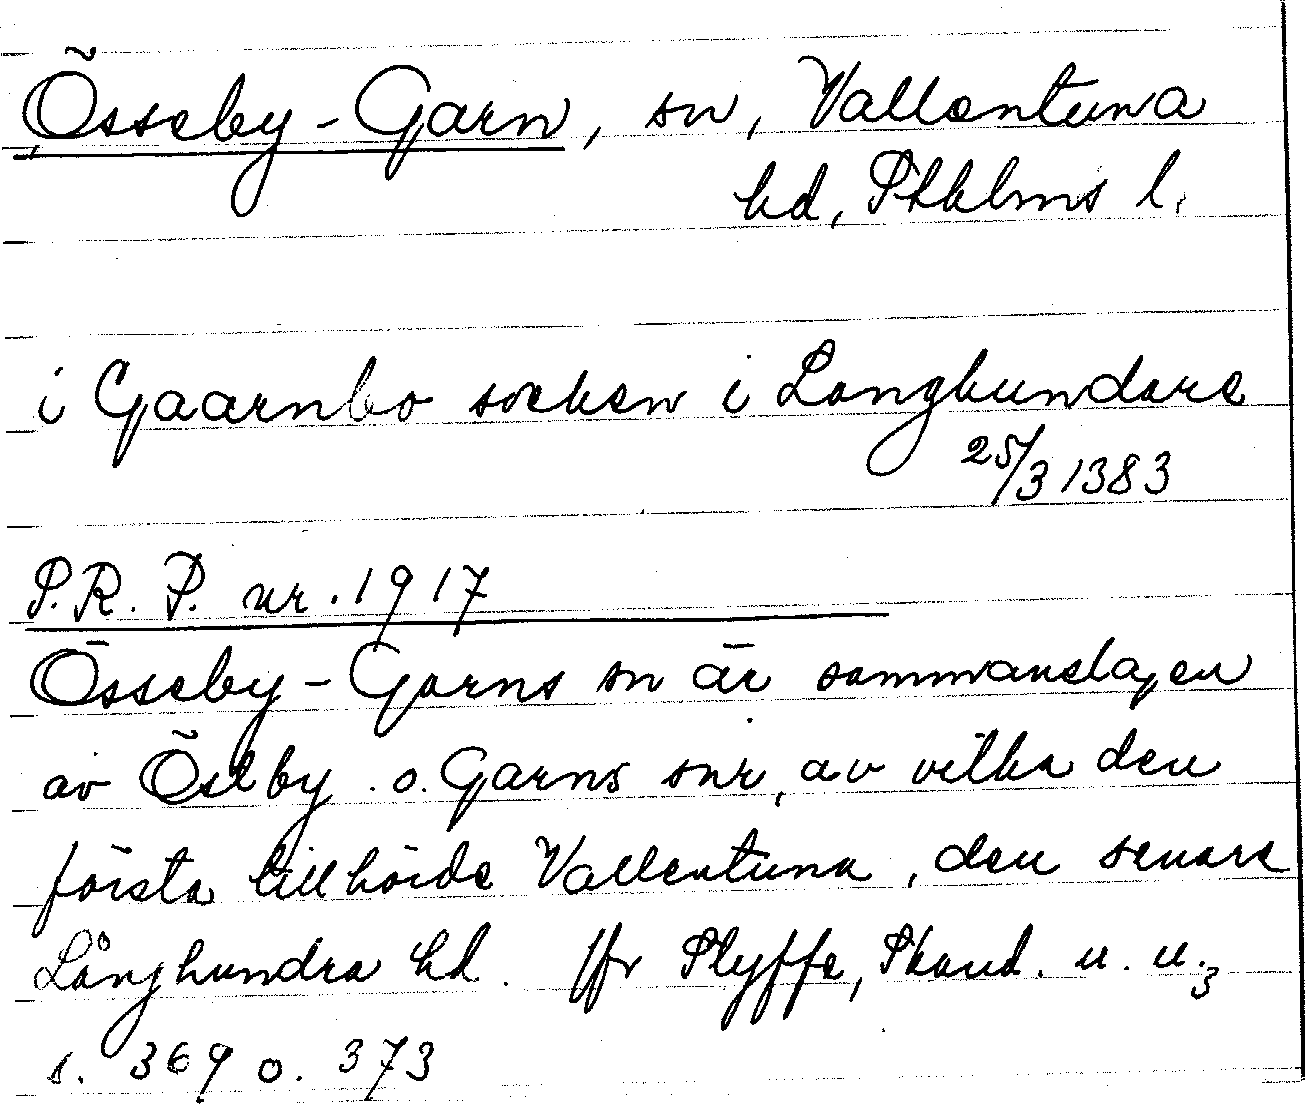 Össeby-Garn, sn, Vallentuna
hd, Sthlms l.
i Gaarnbo socken i Langhundare
25/3 1383
S.R.P. nr. 1917
Össeby-Garns sn är sammanslagen
av Öseby o. Garns snr, av vilka den
första tillhörde Vallentuna, den senare
Långhundra hd. Jfr Styffe, Skand. u. u.3
s. 369 o. 373